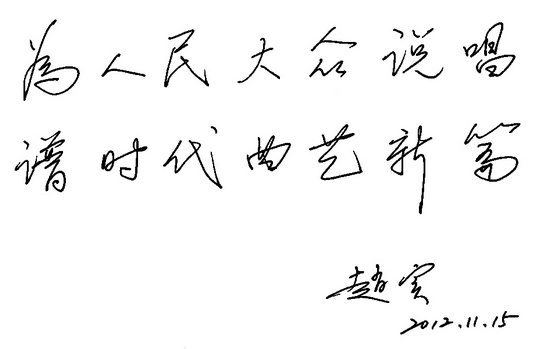 为人民大众说唱
谱时代曲艺新篇
赵实
2012.11.15